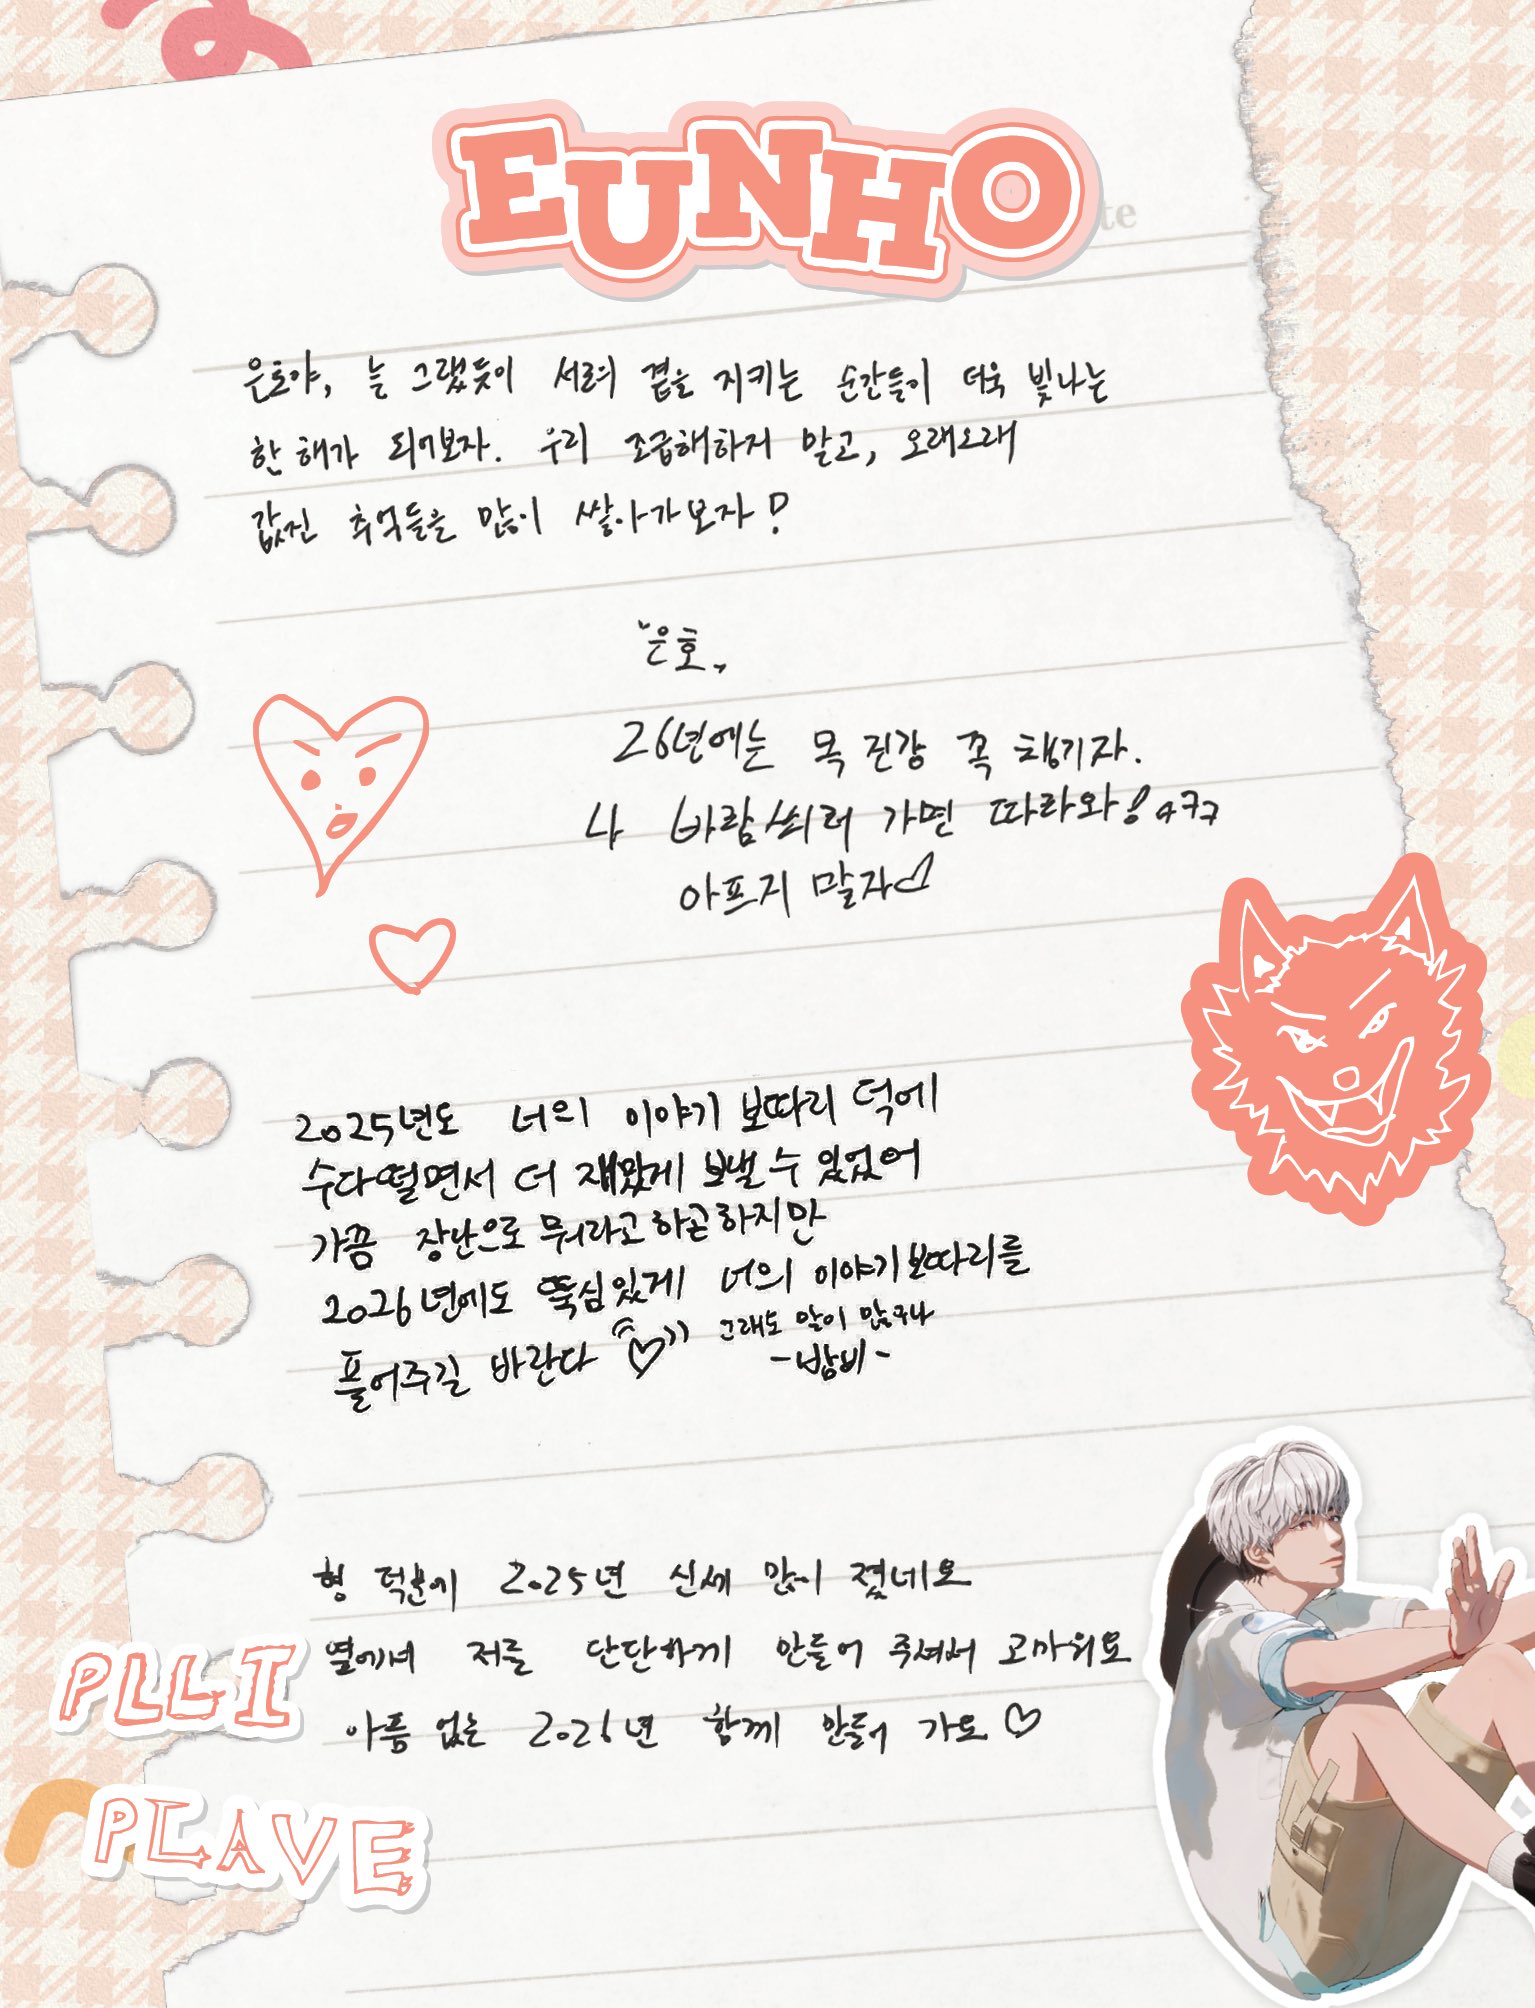 EUNHO
te
은호야, 늘 그랬듯이 서로의 곁을 지키는 순간들이 더욱 빛나는
한 해가 되어보자. 우리 조급해하지 말고, 오래오래
값진 추억들을 많이 쌓아가보자!
"은호„
26년에는 목 건강 꼭 챙기자.
나 바람쐬러 가면 따라와! ㅋㅋㅋ
아프지 말자♡
2025년도 너의 이야기 보따리 덕에
수다떨면서 더 재밌게 보낼 수 있었어
가끔 장난으로 뭐라고 하곤 하지만
2026년에도 뚝심있게 너의 이야기보따리를
풀어주길 바란다 ♡ 그래도 말이 많구나
-밤비-
형 덕분에 2025년 신세 많이 졌네요
옆에서 저를 단단하게 만들어 주셔서 고마워요
아픔 없는 2026년 함께 만들어 가요♡
PLLI
PLAVE